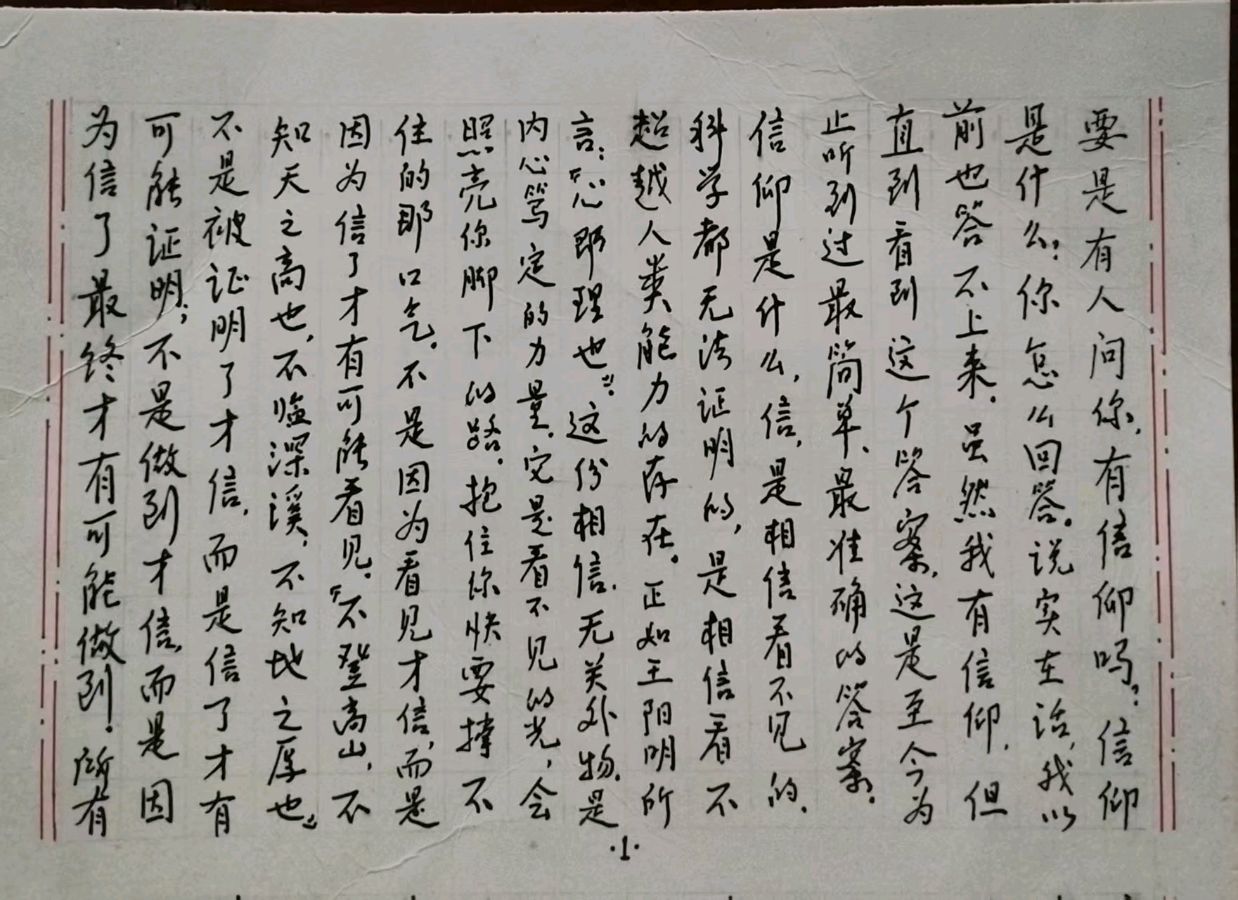 要是有人问你,有信仰吗?信仰
是什么?你怎么回答。说实在话,我以
前也答不上来。虽然我有信仰,但
直到看到这个答案,这是至今为
止听到过最简单、最准确的答案。
信仰是什么,信,是相信看不见的,
科学都无法证明的,是相信看不
超越人类能力的存在。正如王阳明所
言:“心即理也”。这份相信,无关外物,是
内心笃定的力量,它是看不见的光,会
照亮你脚下的路,抱住你快要撑不
住的那口气。不是因为看见才信,而是
因为信了才有可能看见。“不登高山,不
知天之高也,不临深溪,不知地之厚也”
不是被证明了才信,而是信了才有
可能证明;不是做到才信,而是因
为信了最终才有可能做到!所有
·1·